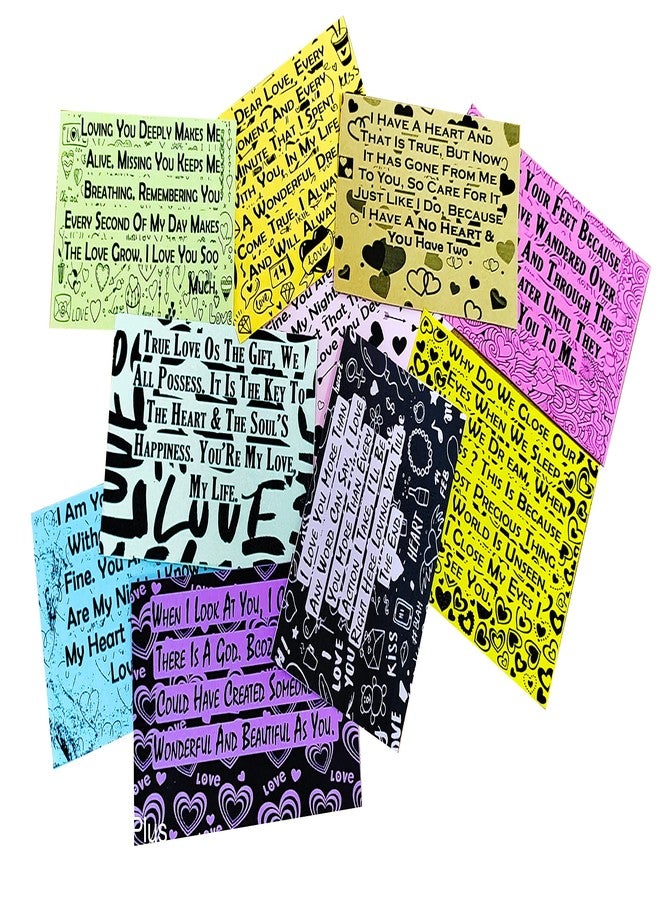 Loving You Deeply Makes Me
Alive, Missing You Keeps Me
Breathing, Remembering You
Every Second Of My Day Makes
The Love Grow, I Love You Soo
Much.
Dear Love, Every
oment And Every
inute That I Spent
ith You, In My Life
A Wonderful Dre
Come True, I Alwa
And Will Alway
14
Love
Kiss
I Have A Heart And
That Is True, But Now
It Has Gone From Me
To You, So Care For It
Just Like I Do, Because
I Have A No Heart &
You Have Two
Your Feet Because
ve Wandered Over
And Through The
ater Until They
You To Me
ine. You
My Night
That
ove You De
True Love Os The Gift, We
All Possess. It Is The Key To
The Heart & The Soul's
Happiness. You'Re My Love,
My Life.
Love
Why Do We Close Our
Eyes When We Sleep
We Dream, When
s? This Is Because
st Precious Thing
World Is Unseen
Close My Eyes I
See You
I Love You More Than
Any Word Can Say, I Love
You More Than Every
Action I Take, I'll Be
Right Here Loving You Till
The End
14 Feb
Heart
Kiss
I Love You
I Am Yo
With
Fine. You A
Are My Night I Know T
My Heart
Lov
When I Look At You, I C
There Is A God, Bcoz
Could Have Created Someon
Wonderful And Beautiful As You.
Love
Love
Love
Love
Plus